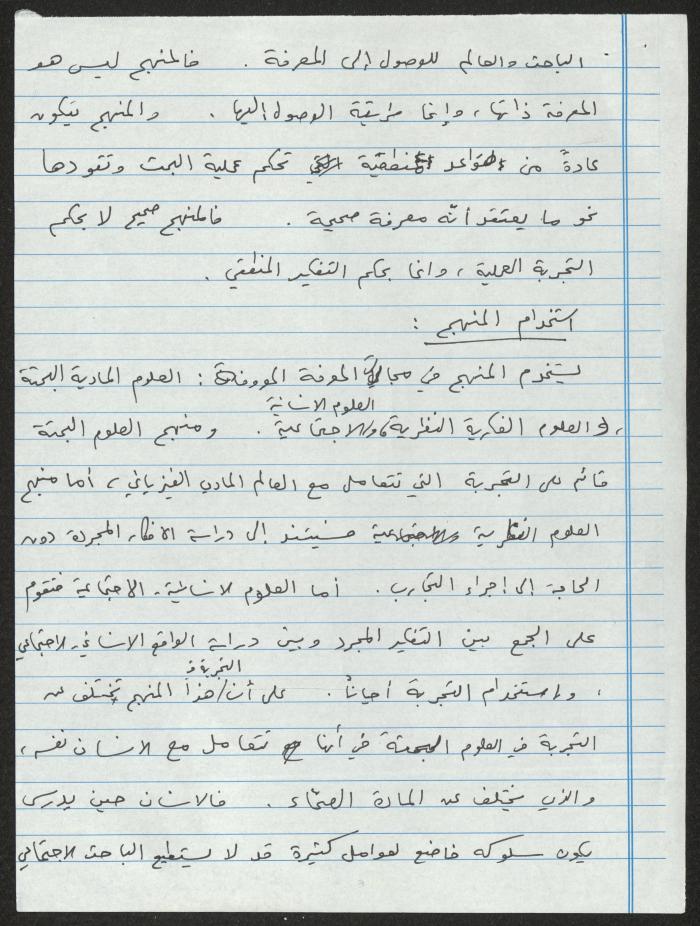 الباحث والعالم للوصول إلى المعرفة . فالمنهج ليس هو
المعرفة ذاتها ، وإنما طريقة الوصول إليها . والمنهج يتكون
عادةً من قواعد منطقية تحكم عملية البحث وتقودها
نحو ما يعتقد أنه معرفة صحيحة . فالمنهج صحيح لا بحكم
التجربة العملية ، وانما بحكم التفكير المنطقي .
استخدام المنهج :
يستخدم المنهج في مجالات المعرفة المعروفة : العلوم المادية البحتة
العلوم الانسانية
، والعلوم الفكرية النظرية ، والاجتماعية . ومنهج العلوم البحتة
قائم على التجربة التي تتعامل مع العالم المادي الفيزيائي ، أما منهج
العلوم النظرية والاجتماعية فيستند إلى دراسة الافكار المجردة دون
الحاجة إلى اجراء التجارب . أما العلوم الانسانية - الاجتماعية فتقوم
على الجمع بين التفكير المجرد وبين دراسة الواقع الانساني - الاجتماعي
التجربة في
، واستخدام التجربة أحياناً . على أن / هذا المنهج تختلف عن
التجربة في العلوم البحتة في أنها تتعامل مع الانسان نفسه ،
والذي يختلف عن المادة الصمّاء . فالانسان حين يدرس
يكون سلوكه خاضع لعوامل كثيرة قد لا يستطيع الباحث الاجتماعي